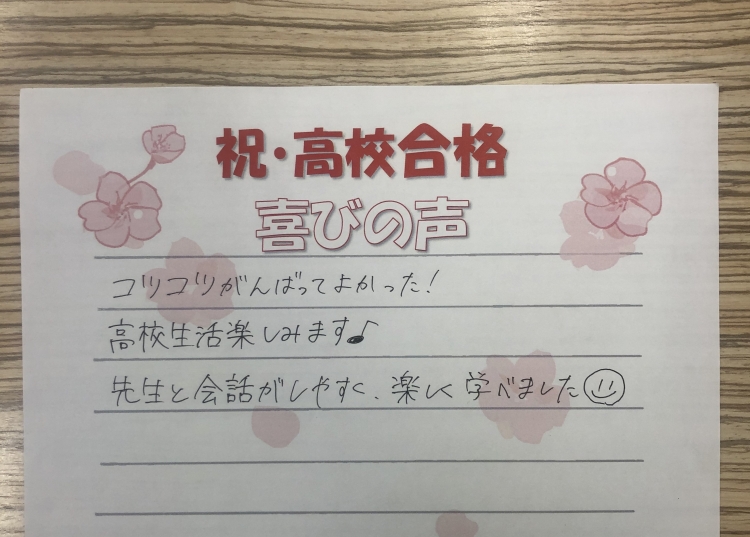 祝・高校合格
喜びの声
コツコツがんばってよかった!
高校生活楽しみます♪
先生と会話がしやすく、楽しく学べました☺